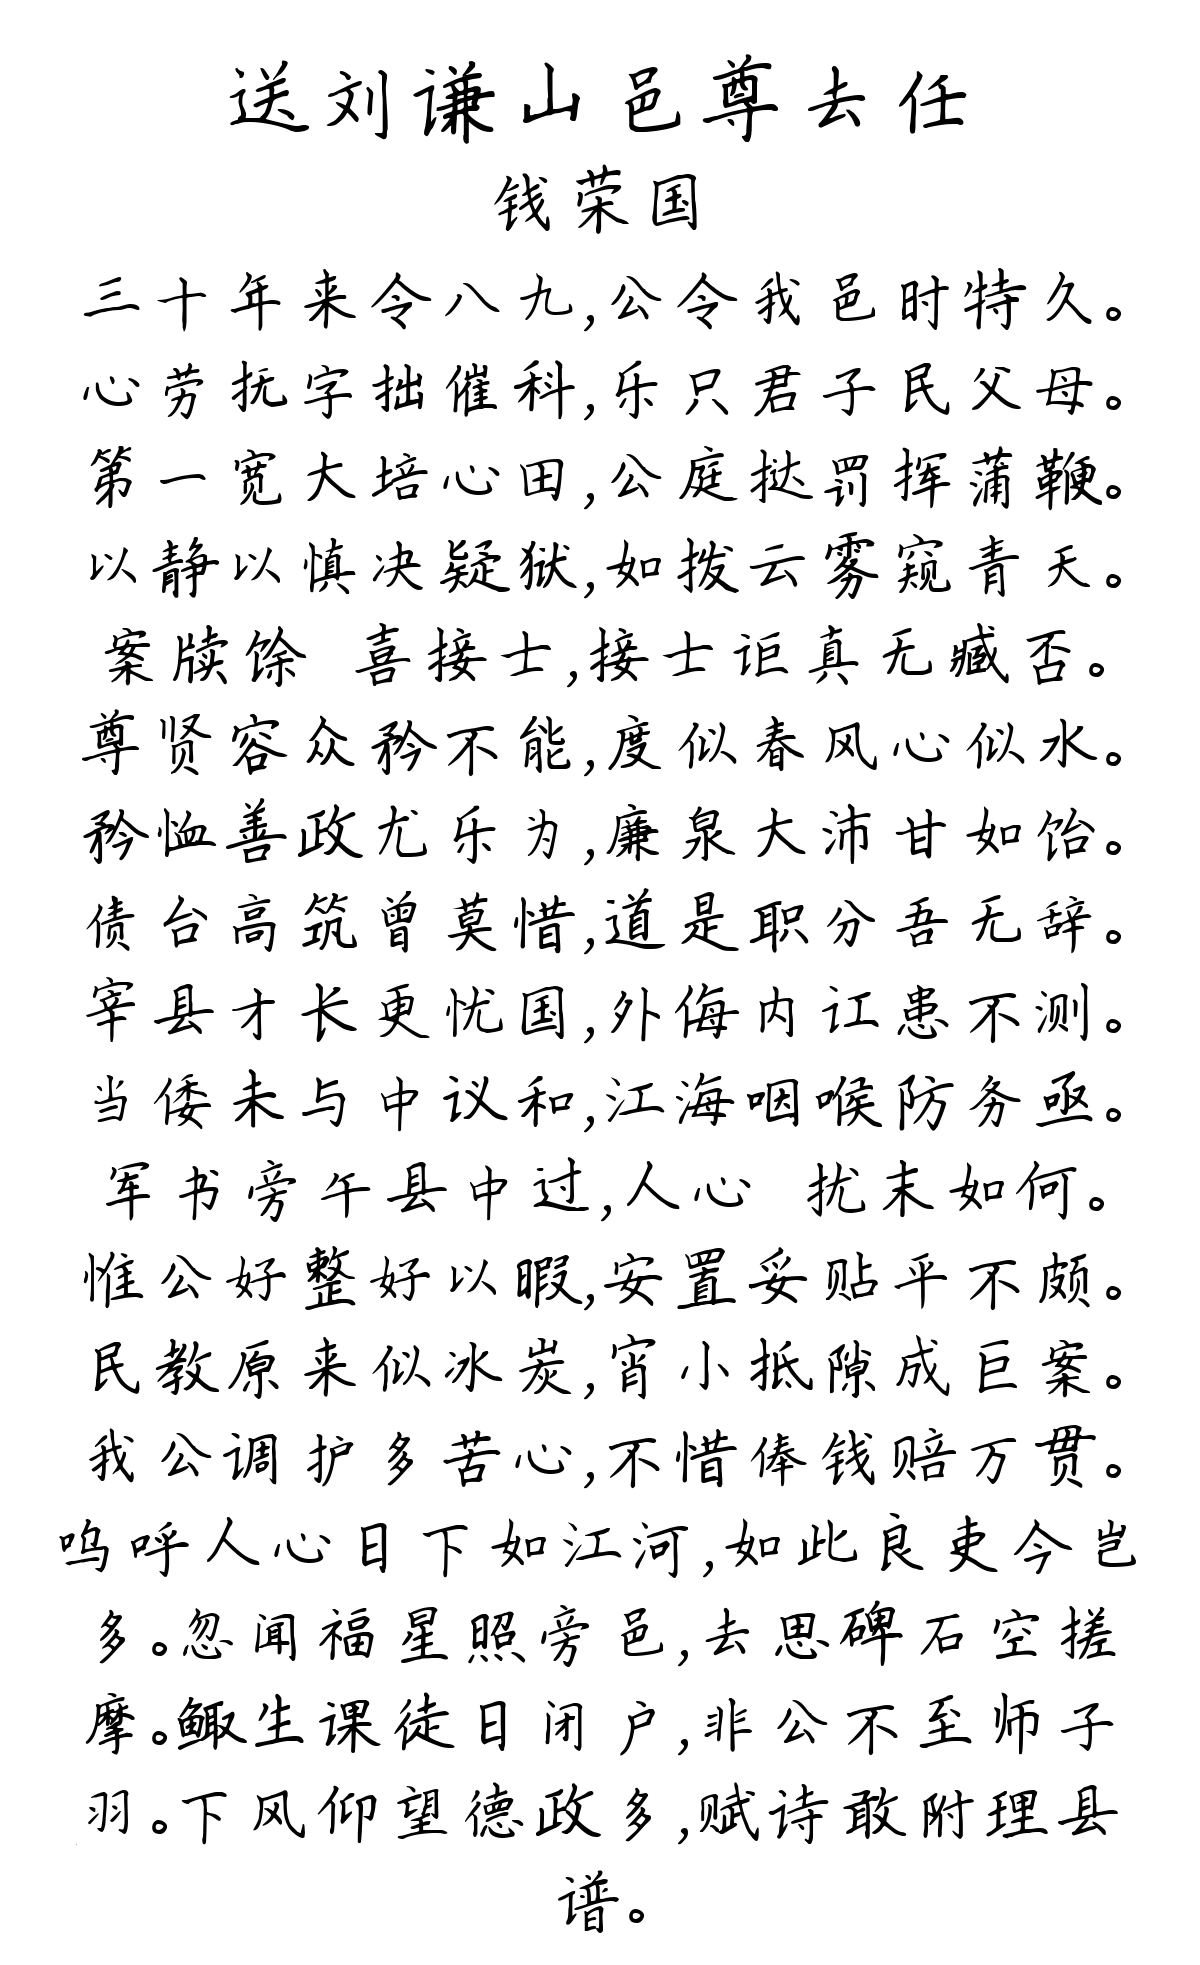 送刘谦山邑尊去任
钱荣国
三十年来令八九,公令我邑时特久。
心劳抚字拙催科,乐只君子民父母。
第一宽大培心田,公庭挞罚挥蒲鞭。
以静以慎决疑狱,如拨云雾窥青天。
案牍馀 喜接士,接士讵真无臧否。
尊贤容众矜不能,度似春风心似水。
矜恤善政尤乐为,廉泉大沛甘如饴。
债台高筑曾莫惜,道是职分吾无辞。
宰县才长更忧国,外侮内讧患不测。
当倭未与中议和,江海咽喉防务亟。
军书旁午县中过,人心 扰末如何。
惟公好整好以暇,安置妥贴平不颇。
民教原来似冰炭,宵小抵隙成巨案。
我公调护多苦心,不惜俸钱赔万贯。
呜呼人心日下如江河,如此良吏今岂
多。忽闻福星照旁邑,去思碑石空搓
摩。鲰生课徒日闭户,非公不至师子
羽。下风仰望德政多,赋诗敢附理县
谱。